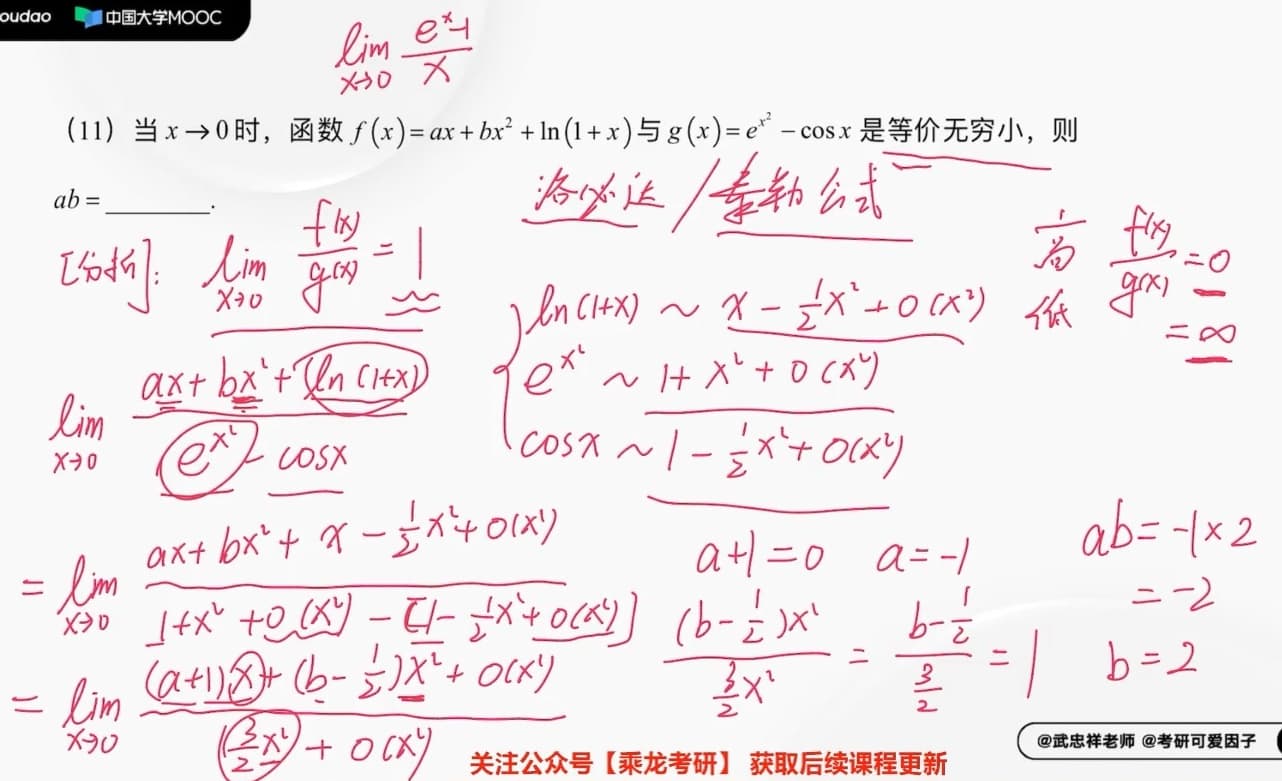 oudao 中国大学MOOC
lim x→0 (e^x-1)/x
（11）当 x → 0 时，函数 f(x) = ax + bx² + ln(1 + x) 与 g(x) = e^{x²} − cos x 是等价无穷小，则
ab = ________.
洛必达 / 泰勒公式
[分析]: lim x→0 f(x)/g(x) = 1
高 f(x)/g(x) = 0
低 = ∞
ln(1+x) ~ x - 1/2 x² + o(x²)
e^{x²} ~ 1 + x² + o(x²)
cosx ~ 1 - 1/2 x² + o(x²)
lim x→0 (ax + bx² + ln(1+x))/(e^{x²} - cosx)
= lim x→0 (ax + bx² + x - 1/2 x² + o(x²))/(1 + x² + o(x²) - [1 - 1/2 x² + o(x²)])
= lim x→0 ((a+1)x + (b - 1/2)x² + o(x²))/(3/2 x² + o(x²))
a+1=0 a=-1
(b - 1/2)x²/(3/2 x²) = (b - 1/2)/(3/2) = 1 b=2
ab = -1×2
= -2
@武忠祥老师 @考研可爱因子
关注公众号【乘龙考研】 获取后续课程更新